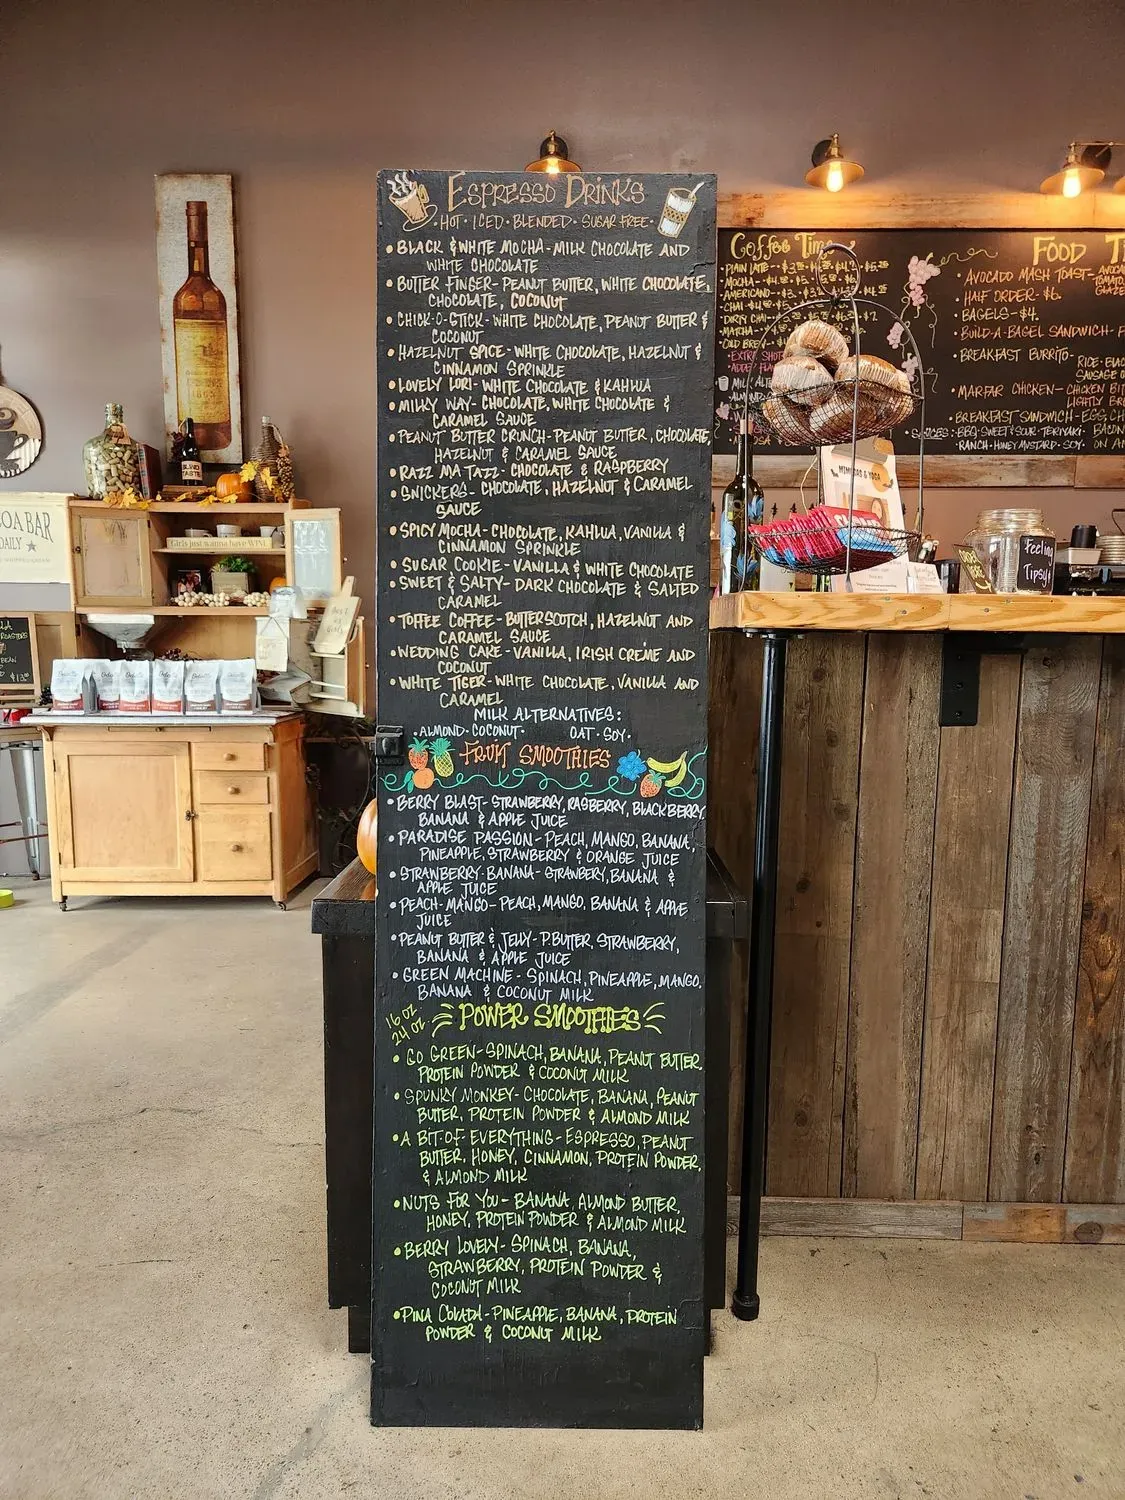 ESPRESSO DRINKS
HOT · ICED · BLENDED · SUGAR FREE ·
• BLACK & WHITE MOCHA - MILK CHOCOLATE AND
WHITE CHOCOLATE
• BUTTER FINGER - PEANUT BUTTER, WHITE CHOCOLATE,
CHOCOLATE, COCONUT
• CHICK-O-STICK - WHITE CHOCOLATE, PEANUT BUTTER &
COCONUT
• HAZELNUT SPICE - WHITE CHOCOLATE, HAZELNUT &
CINNAMON SPRINKLE
• LOVELY LORI - WHITE CHOCOLATE & KAHLUA
• MILKY WAY - CHOCOLATE, WHITE CHOCOLATE &
CARAMEL SAUCE
• PEANUT BUTTER CRUNCH - PEANUT BUTTER, CHOCOLATE,
HAZELNUT & CARAMEL SAUCE
• RAZZ MA TAZZ - CHOCOLATE & RASPBERRY
• SNICKERS - CHOCOLATE, HAZELNUT & CARAMEL
SAUCE
• SPICY MOCHA - CHOCOLATE, KAHLUA, VANILLA &
CINNAMON SPRINKLE
• SUGAR COOKIE - VANILLA & WHITE CHOCOLATE
• SWEET & SALTY - DARK CHOCOLATE & SALTED
CARAMEL
• TOFFEE COFFEE - BUTTERSCOTCH, HAZELNUT AND
CARAMEL SAUCE
• WEDDING CAKE - VANILLA, IRISH CREME AND
COCONUT
• WHITE TIGER - WHITE CHOCOLATE, VANILLA AND
CARAMEL
MILK ALTERNATIVES:
· ALMOND · COCONUT · OAT · SOY ·
FRUIT SMOOTHIES
• BERRY BLAST - STRAWBERRY, RASBERRY, BLACKBERRY,
BANANA & APPLE JUICE
• PARADISE PASSION - PEACH, MANGO, BANANA,
PINEAPPLE, STRAWBERRY & ORANGE JUICE
• STRAWBERRY-BANANA - STRAWBERY, BANANA &
APPLE JUICE
• PEACH-MANGO - PEACH, MANGO, BANANA & APPLE
JUICE
• PEANUT BUTTER & JELLY - P.BUTTER, STRAWBERRY,
BANANA & APPLE JUICE
• GREEN MACHINE - SPINACH, PINEAPPLE, MANGO,
BANANA & COCONUT MILK
16 OZ
24 OZ
POWER SMOOTHIES
• GO GREEN - SPINACH, BANANA, PEANUT BUTTER,
PROTEIN POWDER & COCONUT MILK
• SPUNKY MONKEY - CHOCOLATE, BANANA, PEANUT
BUTTER, PROTEIN POWDER & ALMOND MILK
• A BIT-OF-EVERYTHING - ESPRESSO, PEANUT
BUTTER, HONEY, CINNAMON, PROTEIN POWDER,
& ALMOND MILK
• NUTS FOR YOU - BANANA, ALMOND BUTTER,
HONEY, PROTEIN POWDER & ALMOND MILK
• BERRY LOVELY - SPINACH, BANANA,
STRAWBERRY, PROTEIN POWDER &
COCONUT MILK
• PINA COLADA - PINEAPPLE, BANANA, PROTEIN
POWDER & COCONUT MILK
Coffee Time
PLAIN LATTE
MOCHA
AMERICANO
CHAI
DIRTY CHAI
MATCHA
COLD BREW
EXTRA SHOT
FOOD
• AVOCADO MASH TOAST -
• HALF ORDER - $6.
• BAGELS - $4.
• BUILD-A-BAGEL SANDWICH -
• BREAKFAST BURRITO -
• MARFAR CHICKEN - CHICKEN
• BREAKFAST SANDWICH -
SAUCES: BBQ · SWEET & SOUR · TERIYAKI ·
RANCH · HONEY MUSTARD · SOY ·
MIMOSAS & YOGA
Feeling
Tipsy?
OA BAR
DAILY
Girls just wanna have WINE